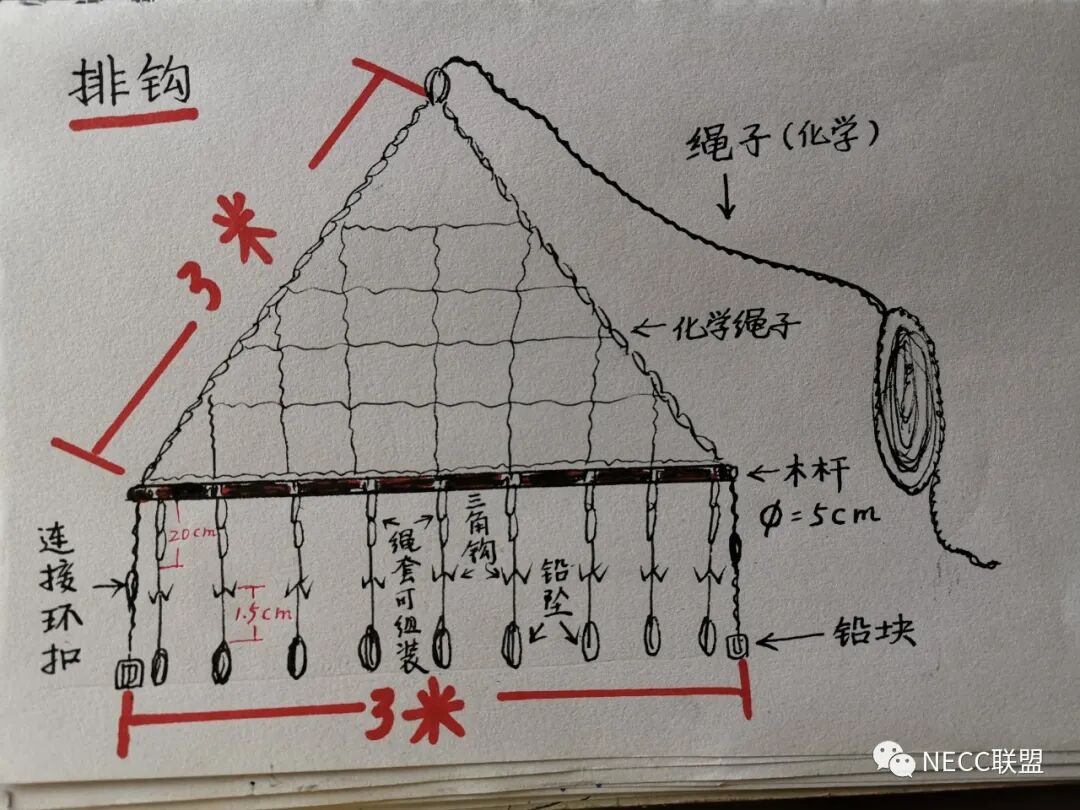 排钩
绳子(化学)
3米
化学绳子
木杆
Φ=5cm
连接环扣
20cm
绳套可组装
三角钩
铅坠
1.5cm
铅块
3米
NECC联盟